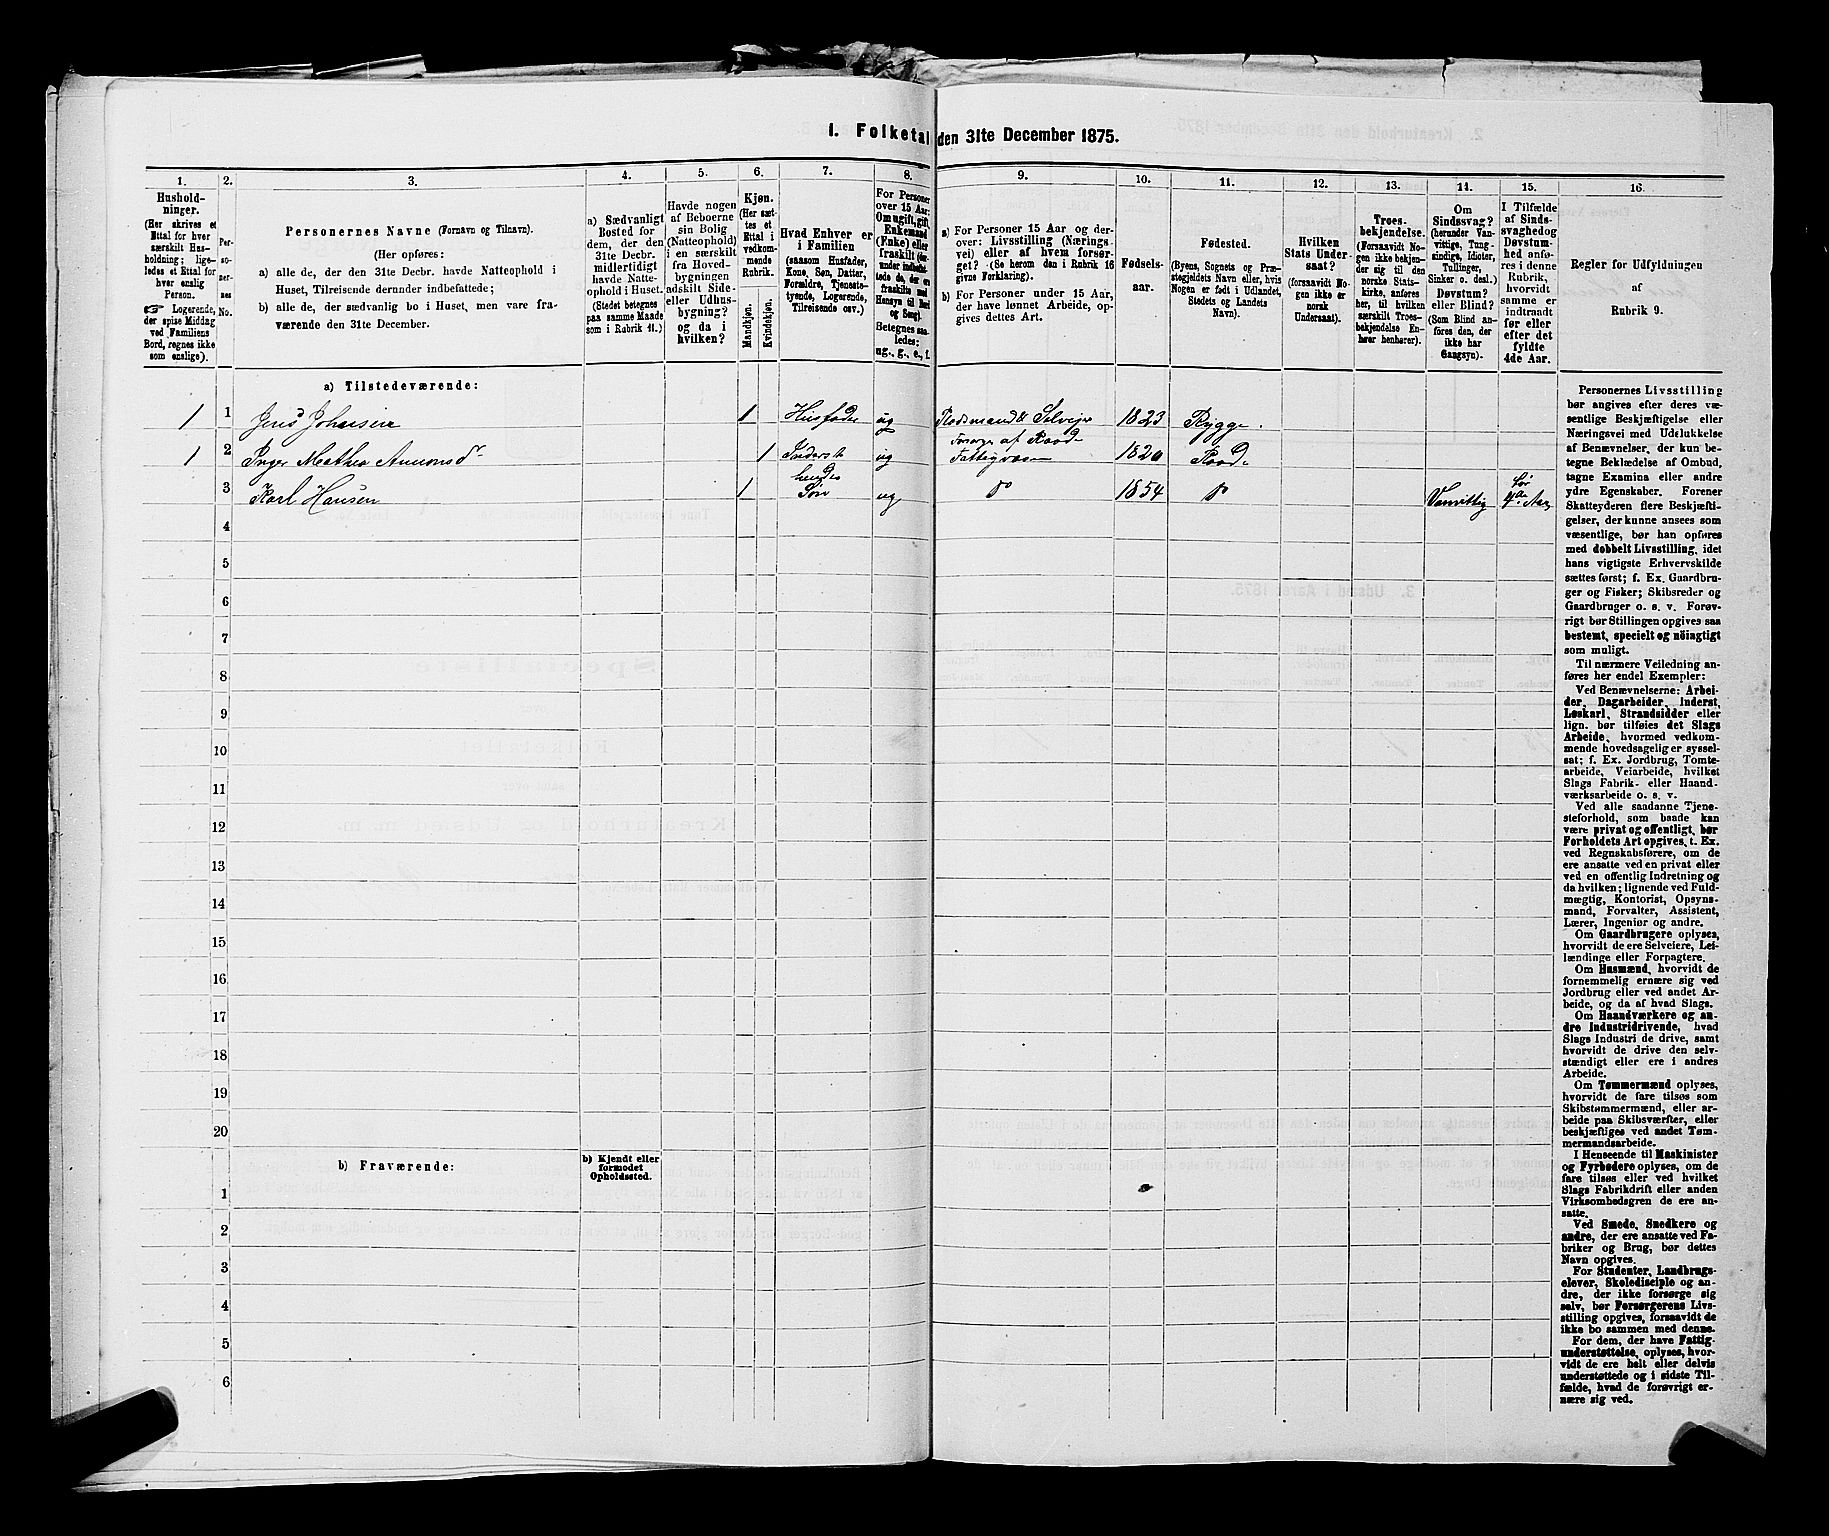 1. Folketal den 31te December 1875.
1.
Hushold-
ninger.
(Her skrives et
Ettal for hver
særskilt Hus-
holdning; lige-
ledes et Ettal for
hver enslig
Person.
☞ Logerende,
der spise Middag
ved Familiens
Bord, regnes ikke
som enslige).
2.
Per-
so-
ner-
nes
No.
3.
Personernes Navne (Fornavn og Tilnavn).
(Her opføres:
a) alle de, der den 31te Decbr. havde Natteophold i
Huset, Tilreisende derunder indbefattede;
b) alle de, der sædvanlig bo i Huset, men vare fra-
værende den 31te December.
4.
a) Sædvanligt
Bosted for
dem, der den
31te Decbr.
midlertidigt
havde Natte-
ophold i Huset.
(Stedet betegnes
paa samme Maade
som i Rubrik 11.)
5.
Havde nogen
af Beboerne
sin Bolig
(Natteophold)
i en særskilt
fra Hoved-
bygningen
adskilt Side-
eller Udhus-
bygning?
og da i
hvilken?
6.
Kjøn.
(Her sæt-
tes et
Ettal i
vedkom-
mende
Rubrik.
Mandkjøn.
Kvindekjøn.
7.
Hvad Enhver er
i Familien
(saasom Husfader,
Kone, Søn, Datter,
Forældre, Tjeneste-
tyende, Logerende,
Tilreisende osv.)
8.
For Personer
over 15 Aar:
Om ugift, gift,
Enkemand
(Enke) eller
fraskilt
Betegnes saa-
ledes:
ug., g., e., f.
9.
a) For Personer 15 Aar og der-
over: Livsstilling (Nærings-
vei) eller af hvem forsør-
get? (Se herom den i Rubrik 16
givne Forklaring).
b) For Personer under 15 Aar,
der have lønnet Arbeide, op-
gives dettes Art.
10.
Fødsels-
aar.
11.
Fødested.
(Byens, Sognets og Præ-
stegjeldets Navn eller, hvis
Nogen er født i Udlandet,
Stedets og Landets
Navn).
12.
Hvilken
Stats Under-
saat?
(forsaavidt No-
gen ikke er
norsk
Undersaat).
13.
Troes-
bekjendelse.
(Forsaavidt No-
gen ikke bekjen-
der sig til den
norske Stats-
kirke, anføres
her, til hvilken
særskilt Troes-
bekjendelse En-
hver henhører).
14.
Om
Sindssvag?
(herunder Van-
vittige, Tung-
sindige, Idioter,
Tullinger,
Sinker o. desl.)
Døvstum?
eller Blind?
(Som Blind an-
føres den, der
ikke har
Gangsyn).
15.
I Tilfælde
af Sinds-
svaghed og
Døvstum-
hed anføres
i denne
Rubrik,
hvorvidt
samme er
indtraadt
før eller
efter det
fyldte
4de Aar.
16.
Regler for Udfyldningen
af
Rubrik 9.
a) Tilstedeværende:
1 1 Jens Johansen 1 Husfader ug Rodemand & Selveier 1823 Rygge.
1 2 Inger Mathea Amonsdr 1 Inderst ug Forsørges af Raade Fattigvæsen 1820 Raade
3 Karl Hansen 1 hendes Søn ug do 1854 do Vanvittig før 4de Aar
4
5
6
7
8
9
10
11
12
13
14
15
16
17
18
19
20
b) Fraværende:
b) Kjendt eller
formodet
Opholdssted.
1
2
3
4
5
6
Personernes Livsstilling
bør angives efter deres væ-
sentlige Beskjæftigelse eller
Næringsvei med Udelukkelse
af Benævnelser, der kun be-
tegne Beklædelse af Ombud,
tagne Examina eller andre
ydre Egenskaber. Forener
Skatteyderen flere Beskjæfti-
gelser, der kunne ansees som
væsentlige, bør han opføres
med dobbelt Livsstilling, idet
hans vigtigste Erhvervskilde
sættes først; f. Ex. Gaardbru-
ger og Fisker; Skibsreder og
Gaardbruger o. s. v. Forøv-
rigt bør Stillingen opgives saa
bestemt, specielt og nöiagtigt
som muligt.
Til nærmere Veiledning an-
føres her endel Exempler:
Ved Benævnelserne: Arbei-
der, Dagarbeider, Inderst,
Løskarl, Strandsidder eller
lign. bør tilføies det Slags
Arbeide, hvormed vedkom-
mende hovedsagelig er syssel-
sat; f. Ex. Jordbrug, Tomte-
arbeide, Veiarbeide, hvilket
Slags Fabrik- eller Haand-
værksarbeide o. s. v.
Ved alle saadanne Tjene-
steforhold, som baade kan
være privat og offentligt, bør
Forholdets Art opgives, t. Ex.
ved Regnskabsførere, om de
ere ansatte ved en privat eller
ved en offentlig Indretning og
da hvilken; lignende ved Fuld-
mægtig, Kontorist, Opsyns-
mand, Forvalter, Assistent,
Lærer, Ingeniør og andre.
Om Gaardbrugere oplyses,
hvorvidt de ere Selveiere, Lei-
lændinge eller Forpagtere.
Om Husmænd, hvorvidt de
fornemmelig ernære sig ved
Jordbrug eller ved andet Ar-
beide, og da af hvad Slags.
Om Haandværkere og an-
dre Industridrivende, hvad
Slags Industri de drive, samt
hvorvidt de drive den selv-
stændigt eller ere i andres
Arbeide.
Om Tømmermænd oplyses,
hvorvidt de fare tilsøs som
Skibstømmermænd, eller ar-
beide paa Skibsværfter, eller
beskjæftiges ved andet Tøm-
mermandsarbeide.
I Henseende til Maskinister
og Fyrbødere oplyses, om de
fare tilsøs eller ved hvilket
Slags Fabrikdrift eller anden
Virksomhedsgren de ere an-
satte.
Ved Smede, Snedkere og
andre, der ere ansatte ved Fa-
briker og Brug, bør dettes
Navn opgives.
For Studenter, Landbrugs-
elever, Skoledisciple og an-
dre, der ikke forsørge sig
selv, bør Forsørgerens Livs-
stilling opgives, forsaavidt de
ikke bo sammen med denne.
For dem, der have Fattig-
understøttelse, oplyses, hvor-
vidt de ere helt eller delvis
understøttede og i sidste Til-
fælde, hvad de forøvrigt er-
nære sig ved.